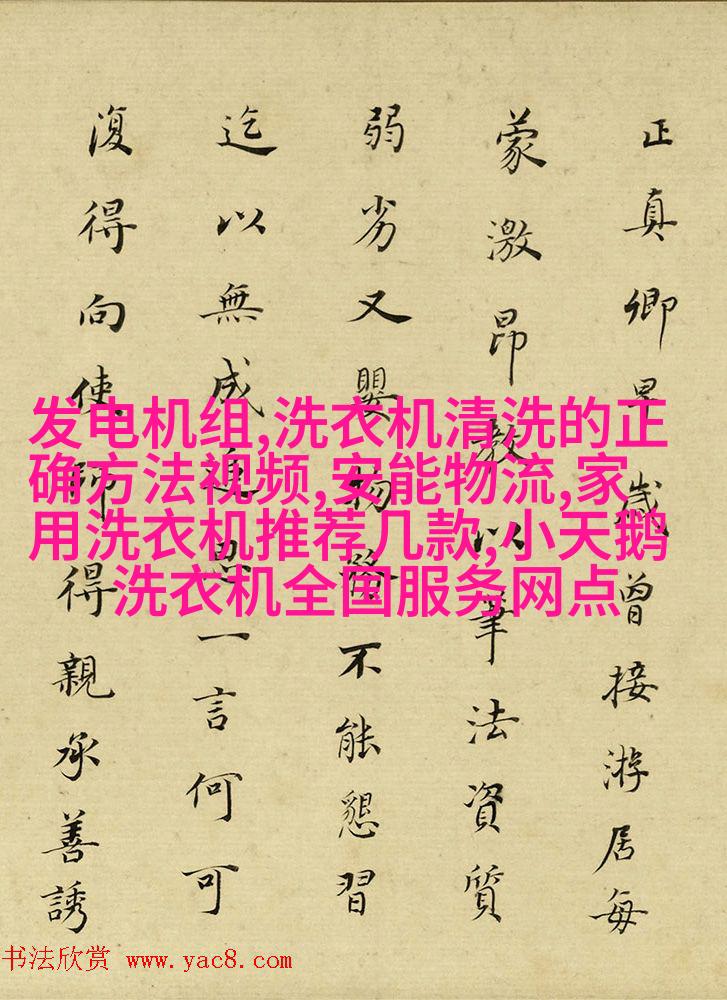 正真卿早歲曾接游居每
蒙激昂教以筆法資質
弱劣又嬰物務不能懇習
迄以無成追思一言何可
復得向使師得親承善誘
发电机组,洗衣机清洗的正
确方法视频,安能物流,家
用洗衣机推荐几款,小天鹅
洗衣机全国服务网点
书法欣赏 www.yac8.com